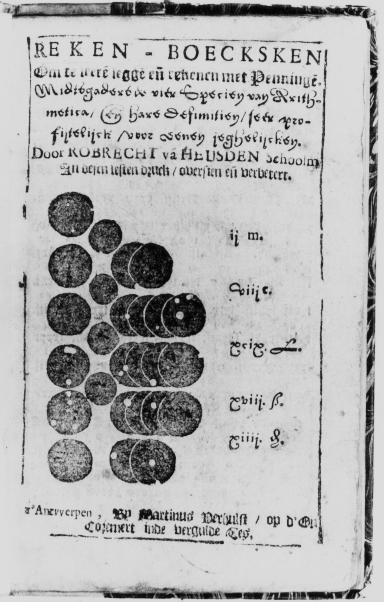 REKEN - BOECKSKEN
Om te leeren legge eñ rekenen met Penningē.
Midtsgaders de vier Specien van Arith-
metica / Eñ hare Definitien / seer pro-
fijtelijck / voor eenen jeghelijcken.
Door ROBRECHT vā HEUSDEN Schoolm
In desen lesten druck / oversien eñ verbetert.
ij m.
viij c.
xxix. £.
xviij. ß.
xiiij. ₰.
t'Antvverpen, By Martinus Verhulst / op d'
inde vergulde